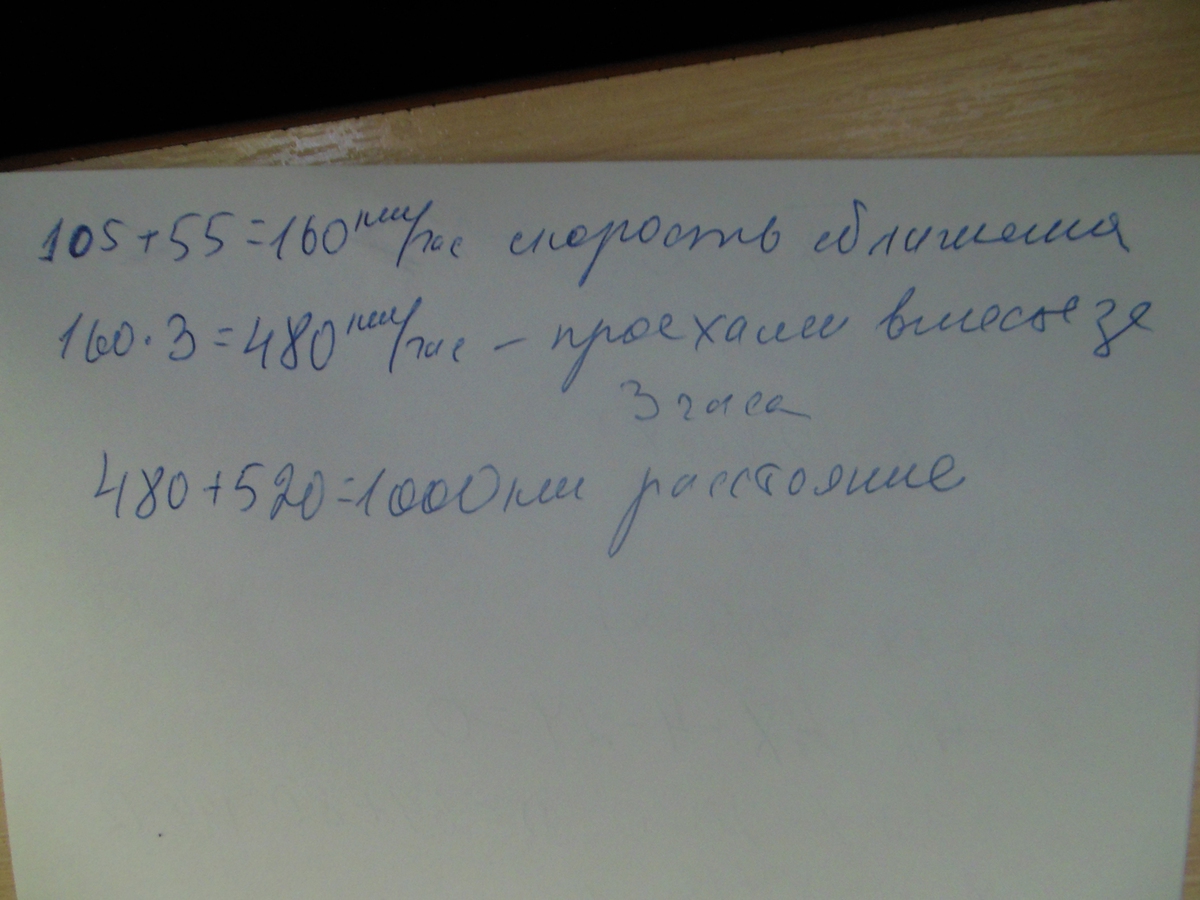 105+55=160км/час скорость сближения
160·3=480км/час – проехали вместе за
3 часа
480+520=1000км расстояние